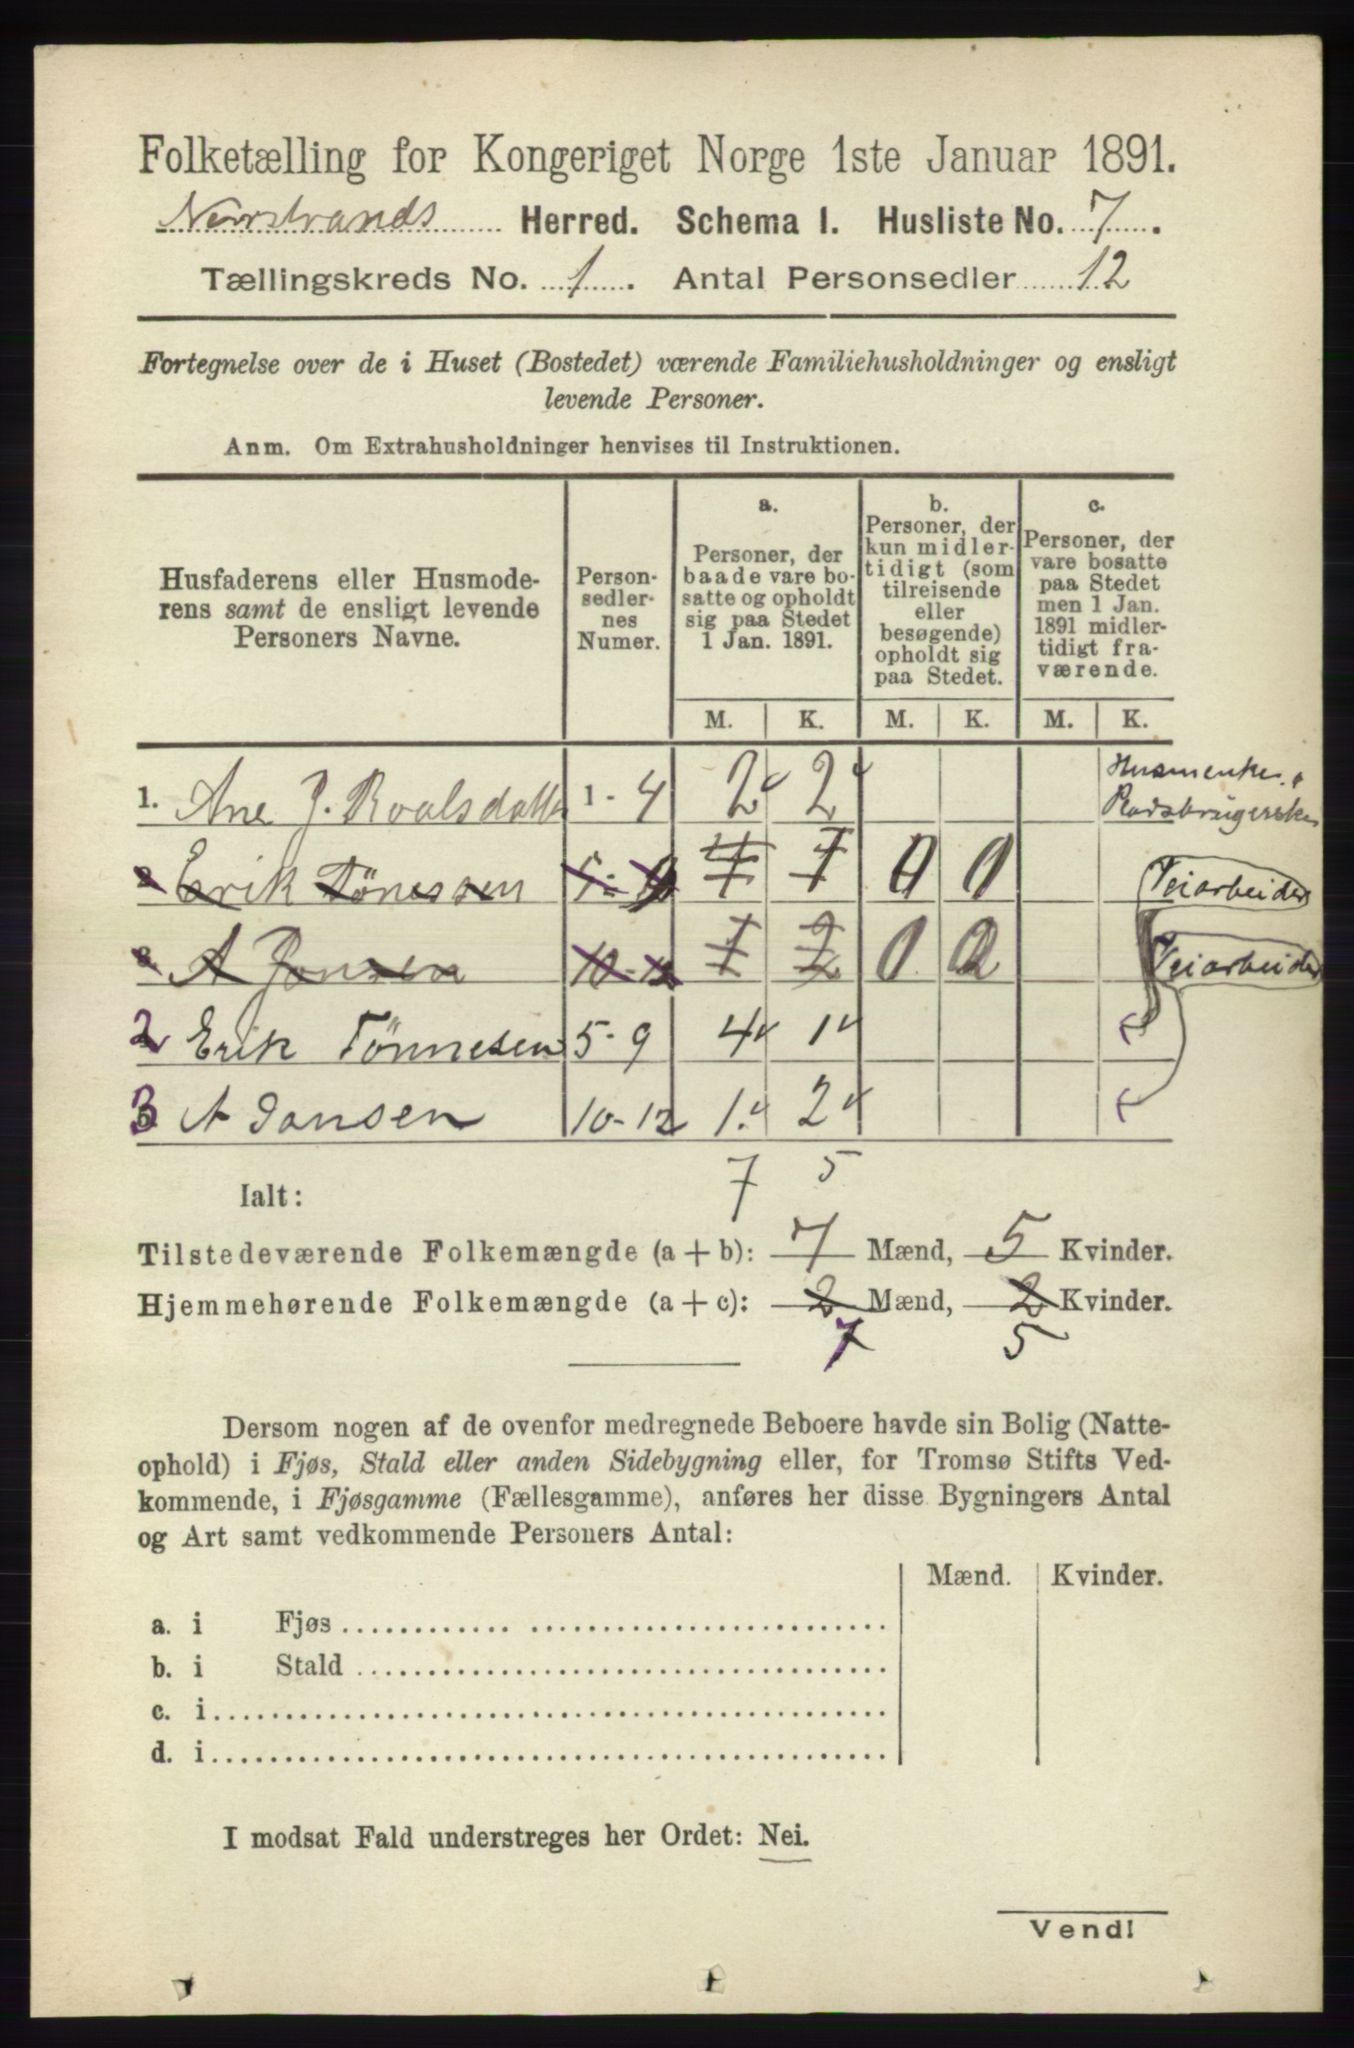 Folketælling for Kongeriget Norge 1ste Januar 1891.
Nerstrands Herred. Schema I. Husliste No. 7.
Tællingskreds No. 1. Antal Personsedler 12
Fortegnelse over de i Huset (Bostedet) værende Familiehusholdninger og ensligt
levende Personer.
Anm. Om Extrahusholdninger henvises til Instruktionen.
Husfaderens eller Husmode-
rens samt de ensligt levende
Personers Navne.
Person-
sedler-
nes
Numer.
a.
Personer, der
baade vare bo-
satte og opholdt
sig paa Stedet
1 Jan. 1891.
b.
Personer, der
kun midler-
tidigt (som
tilreisende
eller
besøgende)
opholdt sig
paa Stedet.
c.
Personer, der
vare bosatte
paa Stedet
men 1 Jan.
1891 midler-
tidigt fra-
værende.
M. K. M. K. M. K.
1. Ane J. Roalsdatter 1 - 4 2 2 Husmenke
Erik Tönessen 5 - 9 1 1 Veiarbeider
A Jonsen 10 - 12 1 2 Veiarbeider
2 Erik Tönnesen 5 - 9 4 1
3 A Jansen 10 - 12 1 2
7 5
Ialt:
Tilstedeværende Folkemængde (a + b): 7 Mænd, 5 Kvinder.
Hjemmehørende Folkemængde (a + c): 2 Mænd, 2 Kvinder.
7 5
Dersom nogen af de ovenfor medregnede Beboere havde sin Bolig (Natte-
ophold) i Fjøs, Stald eller anden Sidebygning eller, for Tromsø Stifts Ved-
kommende, i Fjøsgamme (Fællesgamme), anføres her disse Bygningers Antal
og Art samt vedkommende Personers Antal:
Mænd. Kvinder.
a. i Fjøs
b. i Stald
c. i
d. i
I modsat Fald understreges her Ordet: Nei.
Vend!